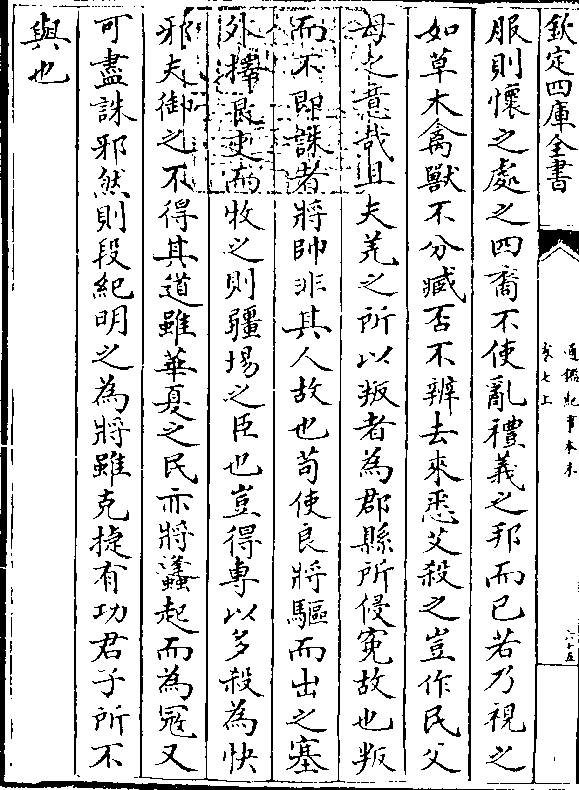 欽定四庫全書
通鑑紀事本末
卷七上
六十五
服則懷之處之四裔不使亂禮義之邦而已若乃視之
如草木禽獸不分臧否不辨去來悉艾殺之豈作民父
母之意哉且夫羌之所以叛者為郡縣所侵寃故也叛
而不即誅者將帥非其人故也苟使良將驅而出之塞
外擇良吏而牧之則疆埸之臣也豈得專以多殺為快
邪夫御之不得其道雖華夏之民亦將蠭起而為冦又
可盡誅邪然則段紀明之為將雖克捷有功君子所不
與也